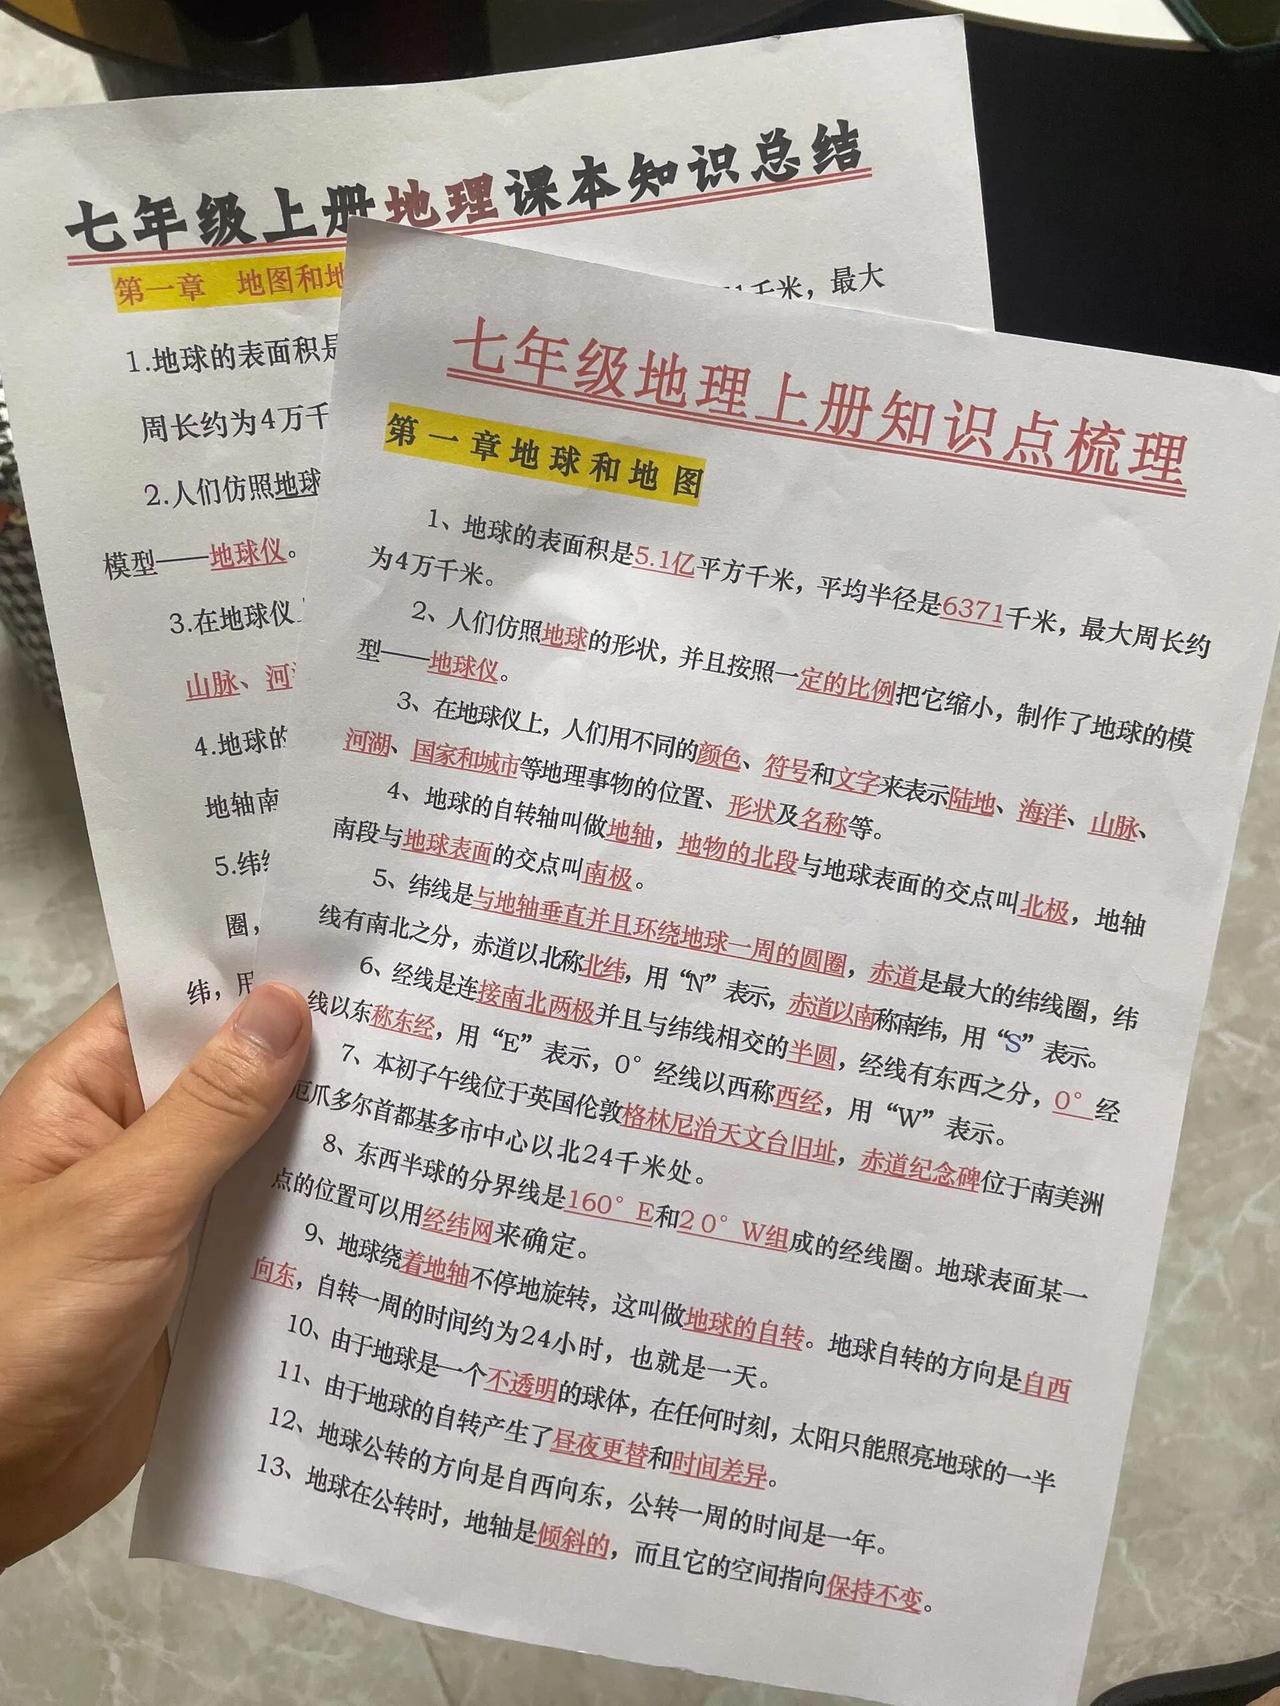 七年级上册地理课本知识总结
第一章 地图和地
1千米，最大
1.地球的表面积是
周长约为4万千
2.人们仿照地球
模型——地球仪。
3.在地球仪
山脉、河
4.地球的
地轴南
5.纬
圈，
纬，用
七年级地理上册知识点梳理
第一章地球和地图
1、地球的表面积是5.1亿平方千米，平均半径是6371千米，最大周长约
为4万千米。
2、人们仿照地球的形状，并且按照一定的比例把它缩小，制作了地球的模
型——地球仪。
3、在地球仪上，人们用不同的颜色、符号和文字来表示陆地、海洋、山脉、
河湖、国家和城市等地理事物的位置、形状及名称等。
4、地球的自转轴叫做地轴，地物的北段与地球表面的交点叫北极，地轴
南段与地球表面的交点叫南极。
5、纬线是与地轴垂直并且环绕地球一周的圆圈，赤道是最大的纬线圈，纬
线有南北之分，赤道以北称北纬，用“N”表示，赤道以南称南纬，用“S”表示。
6、经线是连接南北两极并且与纬线相交的半圆，经线有东西之分，0°经
线以东称东经，用“E”表示，0°经线以西称西经，用“W”表示。
7、本初子午线位于英国伦敦格林尼治天文台旧址，赤道纪念碑位于南美洲
厄爪多尔首都基多市中心以北24千米处。
8、东西半球的分界线是160°E和20°W组成的经线圈。地球表面某一
点的位置可以用经纬网来确定。
9、地球绕着地轴不停地旋转，这叫做地球的自转。地球自转的方向是自西
向东，自转一周的时间约为24小时，也就是一天。
10、由于地球是一个不透明的球体，在任何时刻，太阳只能照亮地球的一半
11、由于地球的自转产生了昼夜更替和时间差异。
12、地球公转的方向是自西向东，公转一周的时间是一年。
13、地球在公转时，地轴是倾斜的，而且它的空间指向保持不变。